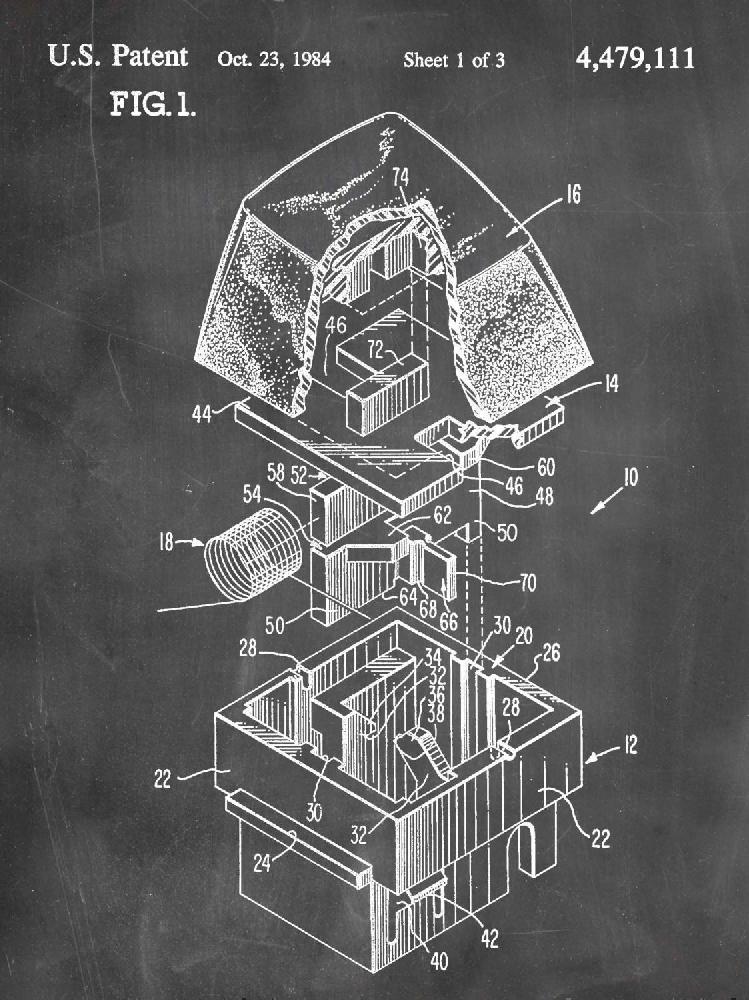 U.S. Patent Oct. 23, 1984 Sheet 1 of 3 4,479,111
FIG. 1.
74
16
46
72
14
44
60
58 52
46
54
48
10
62
50
18
70
64 68 66
50
30 20
28
34
26
32
36
38
28
12
22
30
32
22
24
42
40